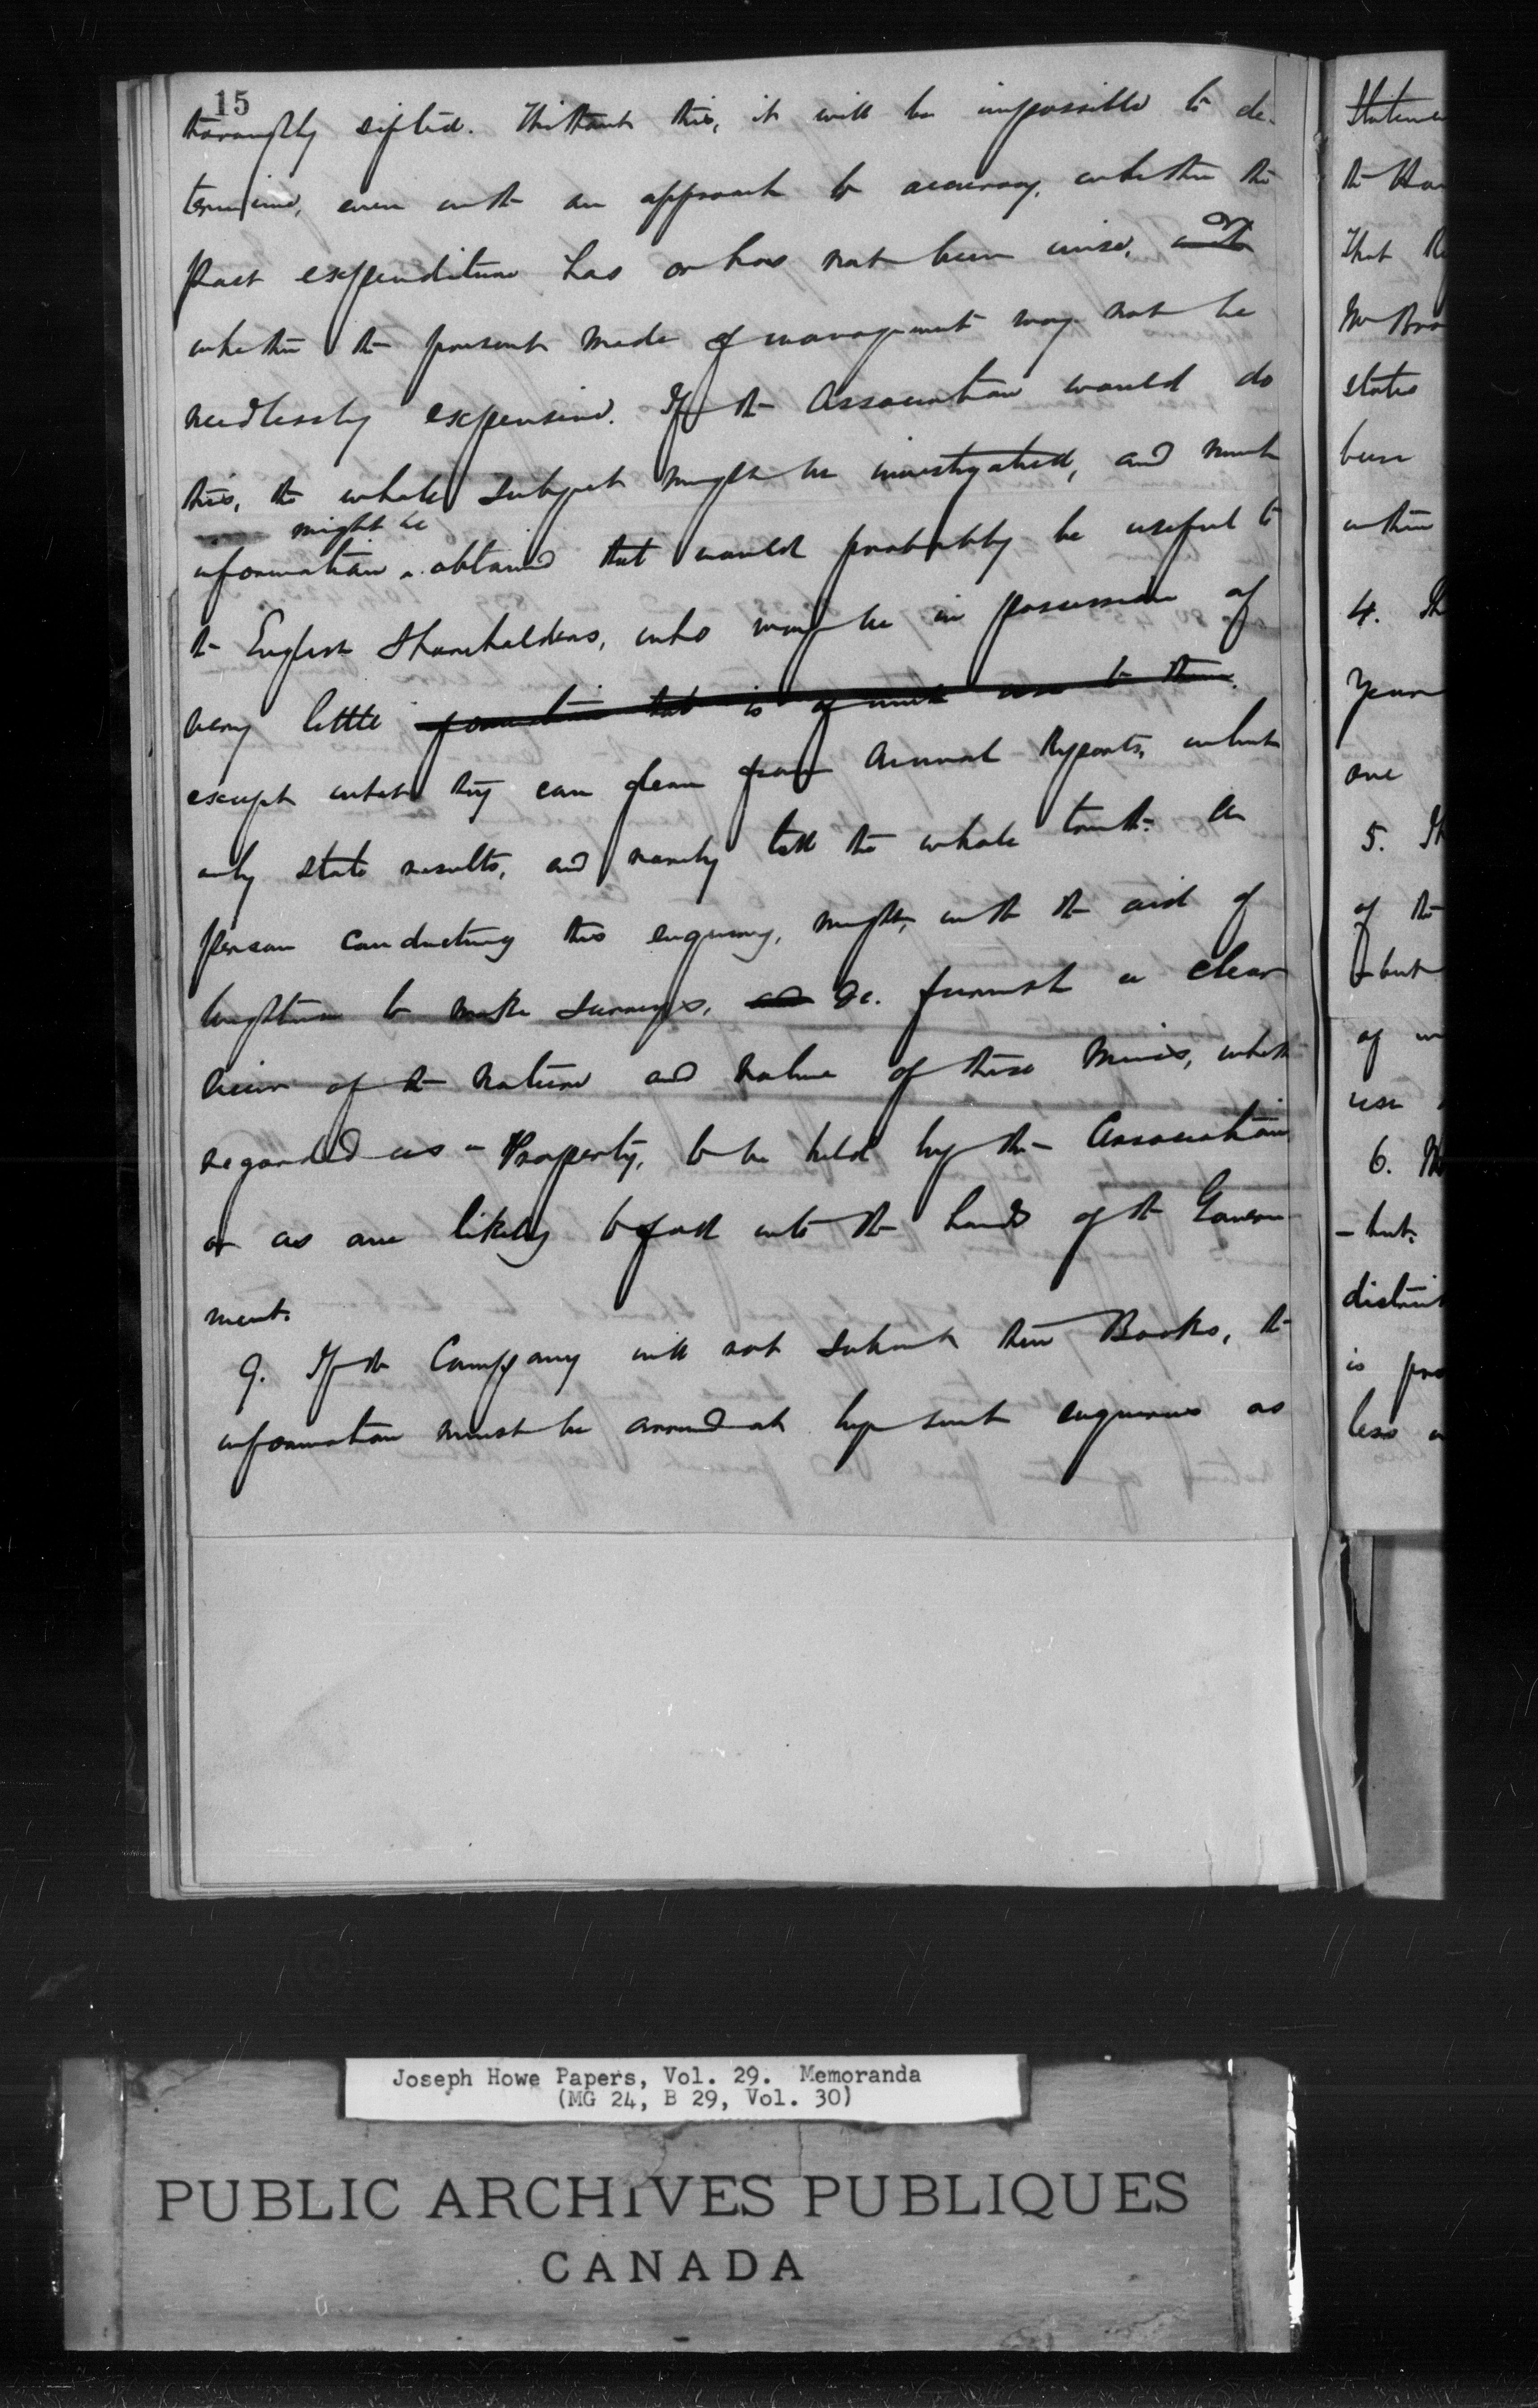 15
thoroughly sifted. Without this, it will be impossible to de-
termine, even with an approach to accuracy, whether the
past expenditure has or has not been wise, or
whether the present mode of management may not be
needlessly expensive. If the Association would do
this, the whole subject might be investigated, and much
might be
information obtained that would probably be useful to
the English Shareholders, who may be in possession of
very little information that is of much use to them.
except what they can glean from Annual Reports, which
only state results, and rarely tell the whole truth. A
person conducting this enquiry, might, with the aid of
to make surveys, and &c. furnish a clear
view of the nature and value of these Mines, whether
regarded as a Property, to be held by the Association
or as are likely to fall into the hands of the Govern-
ment.
9. If the Company will not submit their Books, the
information must be arrived at by such enquiries as
Stateme
the
That
Mr
states
been
within
4. Th
years
one
5. Th
of the
- but
of
use
6.
- but
district
is pro
less
Joseph Howe Papers, Vol. 29. Memoranda
(MG 24, B 29, Vol. 30)
PUBLIC ARCHIVES PUBLIQUES
CANADA